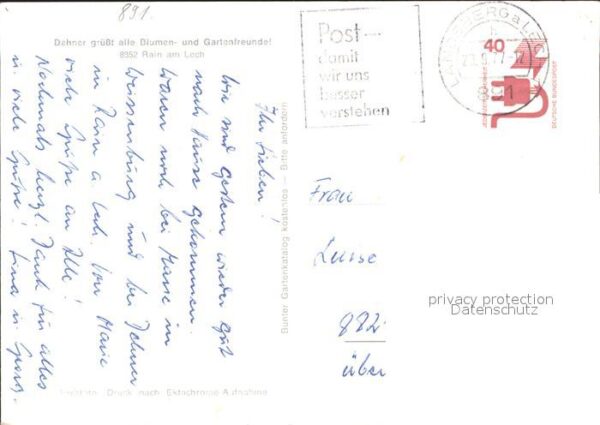 891.
Dehner grüßt alle Blumen- und Gartenfreunde!
8852 Rain am Lech
Ihr Lieben!
Wir sind gestern wieder gut
nach Hause gekommen.
Waren noch bei Marie in
Weissenburg und bei Dehner
in Rain a. Lech. Von Marie
viele Grüße an Alle!
Nochmals herzl. Dank für alles
u. viele Grüße!
Bunter Gartenkatalog kostenlos — Bitte anfordern
Druck nach Ektachrome-Aufnahme
Post —
damit
wir uns
besser
verstehen
LANDSBERG a LECH
77-17
891
40
DEUTSCHE BUNDESPOST
Frau
Luise
882
über
privacy protection
Datenschutz